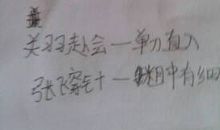 关羽赴会一单刀直入
张飞穿针一粗中有细